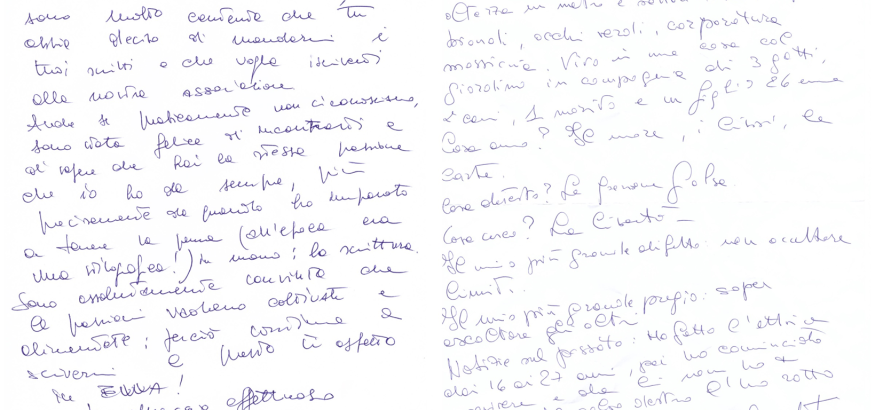 sono molto contenta che tu
abbia deciso di mandarmi i
tuoi scritti e che voglia iscriverti
alla nostra associazione
Anche se praticamente non ci conosciamo,
sono stata felice di incontrarti e
di sapere che hai la stessa passione
che io ho da sempre, più
precisamente da quando ho imparato
a tenere la penna (all'epoca era
una stilografica!) in mano: la scrittura.
Sono assolutamente convinta che
le passioni vadano coltivate e
alimentate; perciò continua a
scrivermi e presto ti aspetto
affettuoso
altezza in metri e
biondi, occhi verdi, corporatura
massiccia. Vivo in una casa col
giardino in compagnia di 3 gatti,
2 cani, 1 marito e un figlio 26enne
Cosa amo? Il mare, i libri, le
carte.
Cosa detesto? La gente falsa.
Cosa cerco? La libertà
Il mio più grande difetto: non accettare
limiti.
Il mio più grande pregio: saper
ascoltare gli altri.
Notizie sul passato: Ho fatto l'attrice
dai 16 ai 27 anni, poi ho cominciato
scrivere e da lì non ho
destro e l'ho rotto